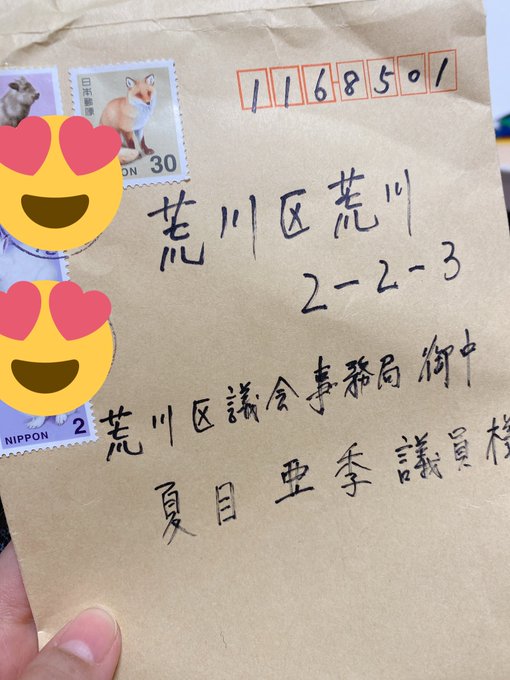 1168501
日本郵便
NIPPON 30
荒川区荒川
2-2-3
荒川区議会事務局 御中
夏目 亜季 議員様
NIPPON 2